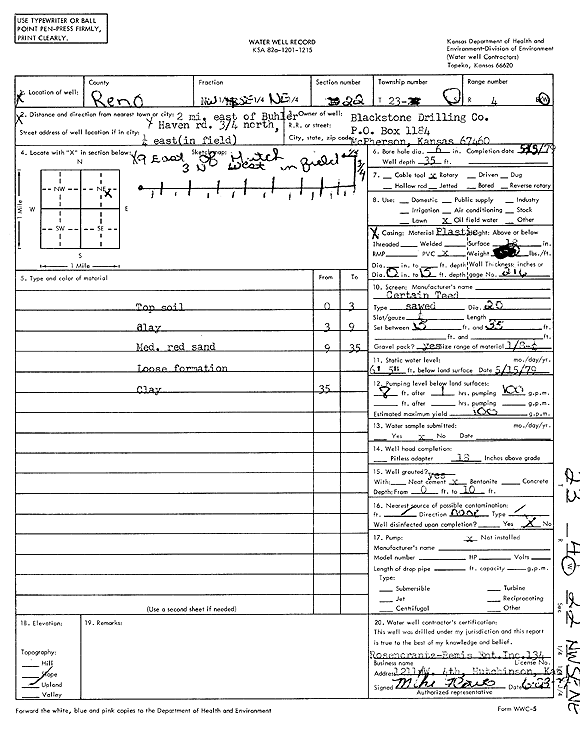 USE TYPEWRITER OR BALL
POINT PEN-PRESS FIRMLY,
PRINT CLEARLY.
WATER WELL RECORD
KSA 82a-1201-1215
Kansas Department of Health and
Environment-Division of Environment
(Water well Contractors)
Topeka, Kansas 66620
1. Location of well:
County
Reno
Fraction
NW 1/4 SE 1/4 NE 1/4
Section number
22
Township number
T 23 S
Range number
R 4 W
2. Distance and direction from nearest town or city: 2 mi. east of Buhler
Haven rd. 3/4 north,
Street address of well location if in city: ½ east(in field)
Owner of well: Blackstone Drilling Co.
R.R. or street: P.O. Box 1184
City, state, zip code: McPherson, Kansas 67460
4. Locate with "X" in section below:
Sketch map:
N
NW
NE
W
E
SW
SE
S
1 Mile
1 Mile
6. Bore hole dia. 6 in. Completion date 5/5/79
Well depth 35 ft.
7. Cable tool X Rotary Driven Dug
Hollow rod Jetted Bored Reverse rotary
8. Use: Domestic Public supply Industry
Irrigation Air conditioning Stock
Lawn X Oil field water Other
Casing: Material Plastic Height: Above or below
Threaded Welded Surface 18 in.
RMP PVC X Weight lbs./ft.
Dia. in. to ft. depth Wall Thickness: inches or
Dia. in. to 15 ft. depth gage No. 216
5. Type and color of material
From
To
Top soil 0 3
Clay 3 9
Med. red sand 9 35
Loose formation
Clay 35
(Use a second sheet if needed)
10. Screen: Manufacturer's name
Certain Teed
Type sawed Dia. 20
Slot/gauze Length
Set between 15 ft. and 35 ft.
ft. and ft.
Gravel pack? yes Size range of material
11. Static water level: mo./day/yr.
ft. below land surface Date 5/15/79
12. Pumping level below land surfaces:
8 ft. after 1 hrs. pumping 100 g.p.m.
ft. after hrs. pumping g.p.m.
Estimated maximum yield 100 g.p.m.
13. Water sample submitted: mo./day/yr.
Yes X No Date
14. Well head completion:
Pitless adapter 18 Inches above grade
15. Well grouted? yes
With: Neat cement X Bentonite Concrete
Depth: From 0 ft. to 10 ft.
16. Nearest source of possible contamination:
ft. Direction none Type
Well disinfected upon completion? Yes X No
17. Pump: X Not installed
Manufacturer's name
Model number HP Volts
Length of drop pipe ft. capacity g.p.m.
Type:
Submersible Turbine
Jet Reciprocating
Centrifugal Other
18. Elevation:
Topography:
Hill
Slope
Upland
Valley
19. Remarks:
20. Water well contractor's certification:
This well was drilled under my jurisdiction and this report
is true to the best of my knowledge and belief.
Rosencrantz-Bemis Ent.Inc.134
Business name License No.
Address 1211 W. 4th, Hutchinson, Kan
Signed Date
Authorized representative
Forward the white, blue and pink copies to the Department of Health and Environment
Form WWC-5